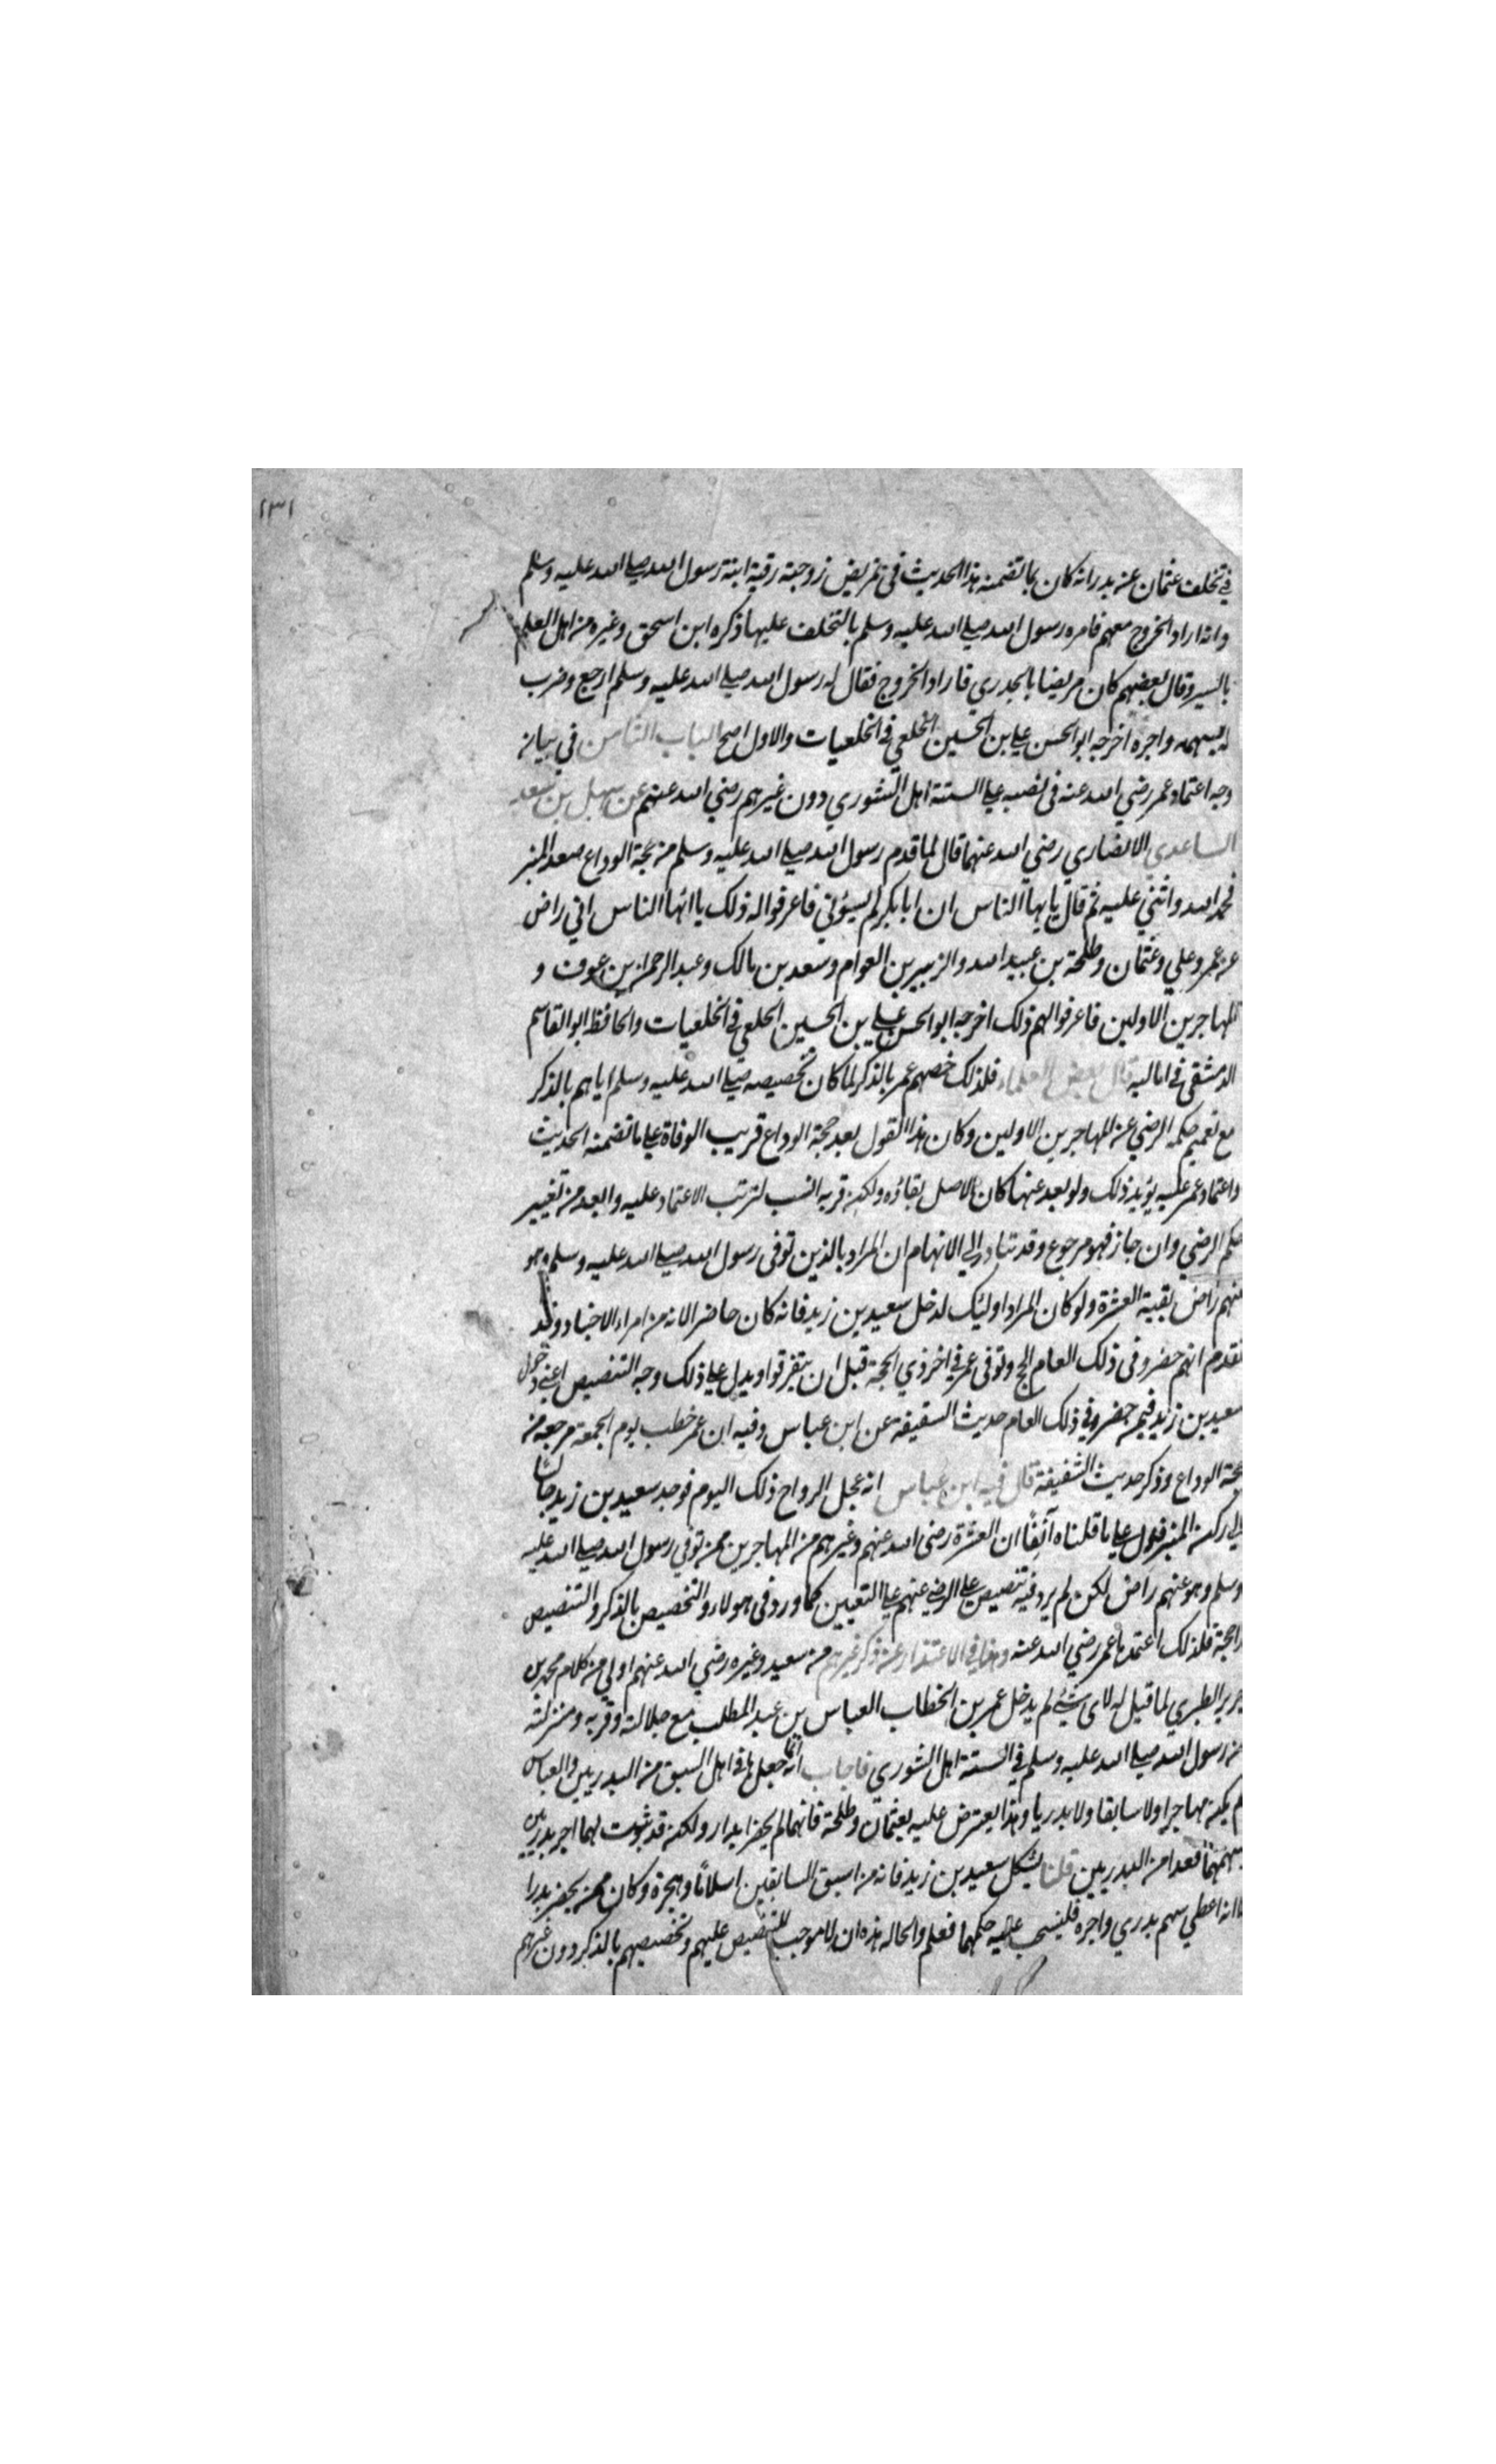 ١٣١
في تخلف عثمان عن بدر انه كان بما تضمنه هذا الحديث في تمريض زوجته رقية ابنة رسول الله صلى الله عليه وسلم
وانه اراد الخروج معهم فامره رسول الله صلى الله عليه وسلم بالتخلف عليها ذكره ابن اسحق وغيره من اهل العلم
بالسير وقال بعضهم كان مريضا بالجدري فاراد الخروج فقال له رسول الله صلى الله عليه وسلم ارجع وضرب
له بسهمه واجره اخرجه ابو الحسن علي بن الحسين الخلعي في الخلعيات والاول اصح الباب الثامن في بيان
وجه اعتماد عمر رضي الله عنه في نصبه على الستة اهل الشوري دون غيرهم رضي الله عنهم عن سهل بن سعد
الساعدي الانصاري رضي الله عنهما قال لما قدم رسول الله صلى الله عليه وسلم من حجة الوداع صعد المنبر
فحمد الله واثني عليه ثم قال يايها الناس ان ابا بكر لم يسؤني فاعرفوا له ذلك يا ايها الناس اني راض
عن عمر وعلي وعثمان وطلحة بن عبيد الله والزبير بن العوام وسعد بن مالك وعبد الرحمن بن عوف و
المهاجرين الاولين فاعرفوا لهم ذلك اخرجه ابو الحسن علي بن الحسين الخلعي في الخلعيات والحافظ ابو القاسم
الدمشقي في اماليه قال بعض العلماء فلذلك خصهم عمر بالذكر لما كان تخصيصه صلى الله عليه وسلم اياهم بالذكر
مع تعميم حكم الرضي عن المهاجرين الاولين وكان هذا القول بعد حجة الوداع قريب الوفاة على ما تضمنه الحديث
واعتماد عمر عليه يؤيد ذلك ولو بعد عنها كان الاصل بقاؤه ولكن قربه انسب لترتب الاعتماد عليه وابعد من تغيير
حكم الرضي وان جاز فهو مرجوع وقد تبادر الي الافهام ان المراد بالذين توفى رسول الله صلى الله عليه وسلم وهو
عنهم راض بقية العشرة ولو كان المراد اوليك لدخل سعيد بن زيد فانه كان حاضرا لانه من امراء الاجناد وقد
تقدم انهم حضروا في ذلك العام الحج وتوفى عمر في اخر ذي الحجة قبل ان يتفرقوا ويدل على ذلك وجه التنصيص اعني دخول
سعيد بن زيد فيمن حضر في ذلك العام حديث السقيفة عن ابن عباس وفيه ان عمر خطب يوم الجمعة مرجعه من
حجة الوداع وذكر حديث السقيفة قال فيه ابن عباس انه عجل الرواح ذلك اليوم فوجد سعيد بن زيد جالسا
الي ركن المنبر فدل على ما قلناه آنفًا ان العشرة رضي الله عنهم وغيرهم من المهاجرين ممن توفي رسول الله صلى الله عليه
وسلم وهو عنهم راض لكن لم يرد فيه تنصيص على الرضي عنهم على التعيين كما ورد في هولاء والتخصيص بالذكر والتنصيص
راجحة فلذلك اعتمدها عمر رضي الله عنه وهذا في الاعتذار عن ذكر غيرهم من سعيد وغيره رضي الله عنهم اولي من كلام محمد بن
جرير الطبري لما قيل له لاى شئ لم يدخل عمر بن الخطاب العباس بن عبد المطلب مع جلالته وقربه ومنزلته
من رسول الله صلى الله عليه وسلم في الستة اهل الشوري فاجاب انه انما جعلها في اهل السبق من البدريين والعباس
لم يكن مهاجرا ولا سابقا ولا بدريا وهذا يعترض عليه بعثمان وطلحة فانهما لم يحضرا بدرا ولكن قد ثبت لهما اجر بدريين
وسهمهما فعدا من البدريين قلنا يشكل سعيد بن زيد فانه من اسبق السابقين اسلامًا وهجرة وكان ممن يحضر بدرا
الا انه اعطي سهم بدري واجره فلينسحب عليه حكمهما فعلم والحاله هذه ان لا موجب للتنصيص عليهم وتخصيصهم بالذكر دون غيرهم